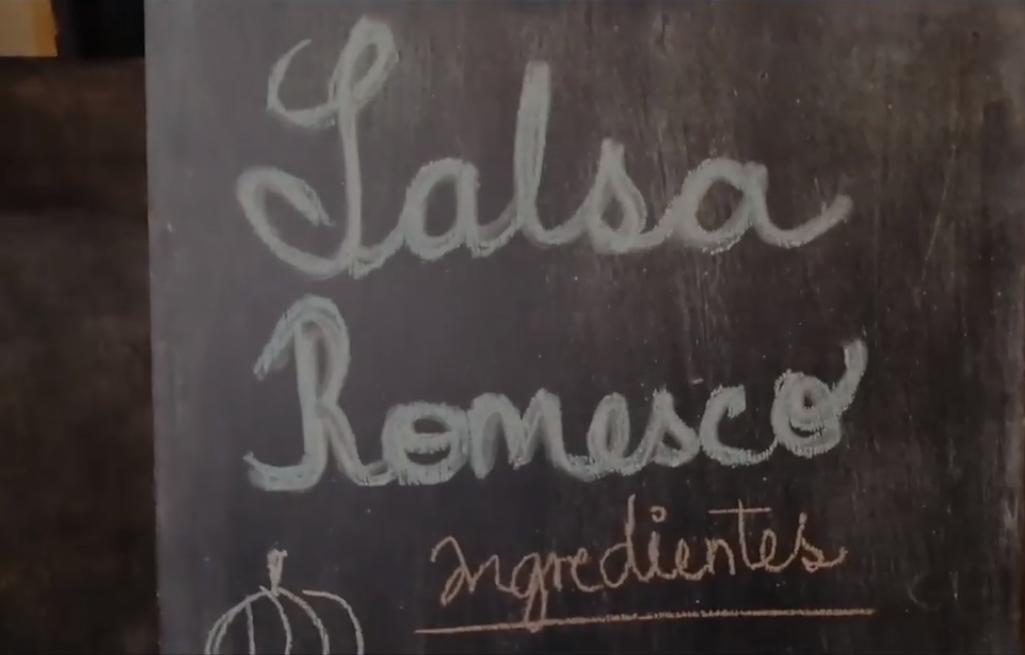 Salsa
Romesco
Ingredientes